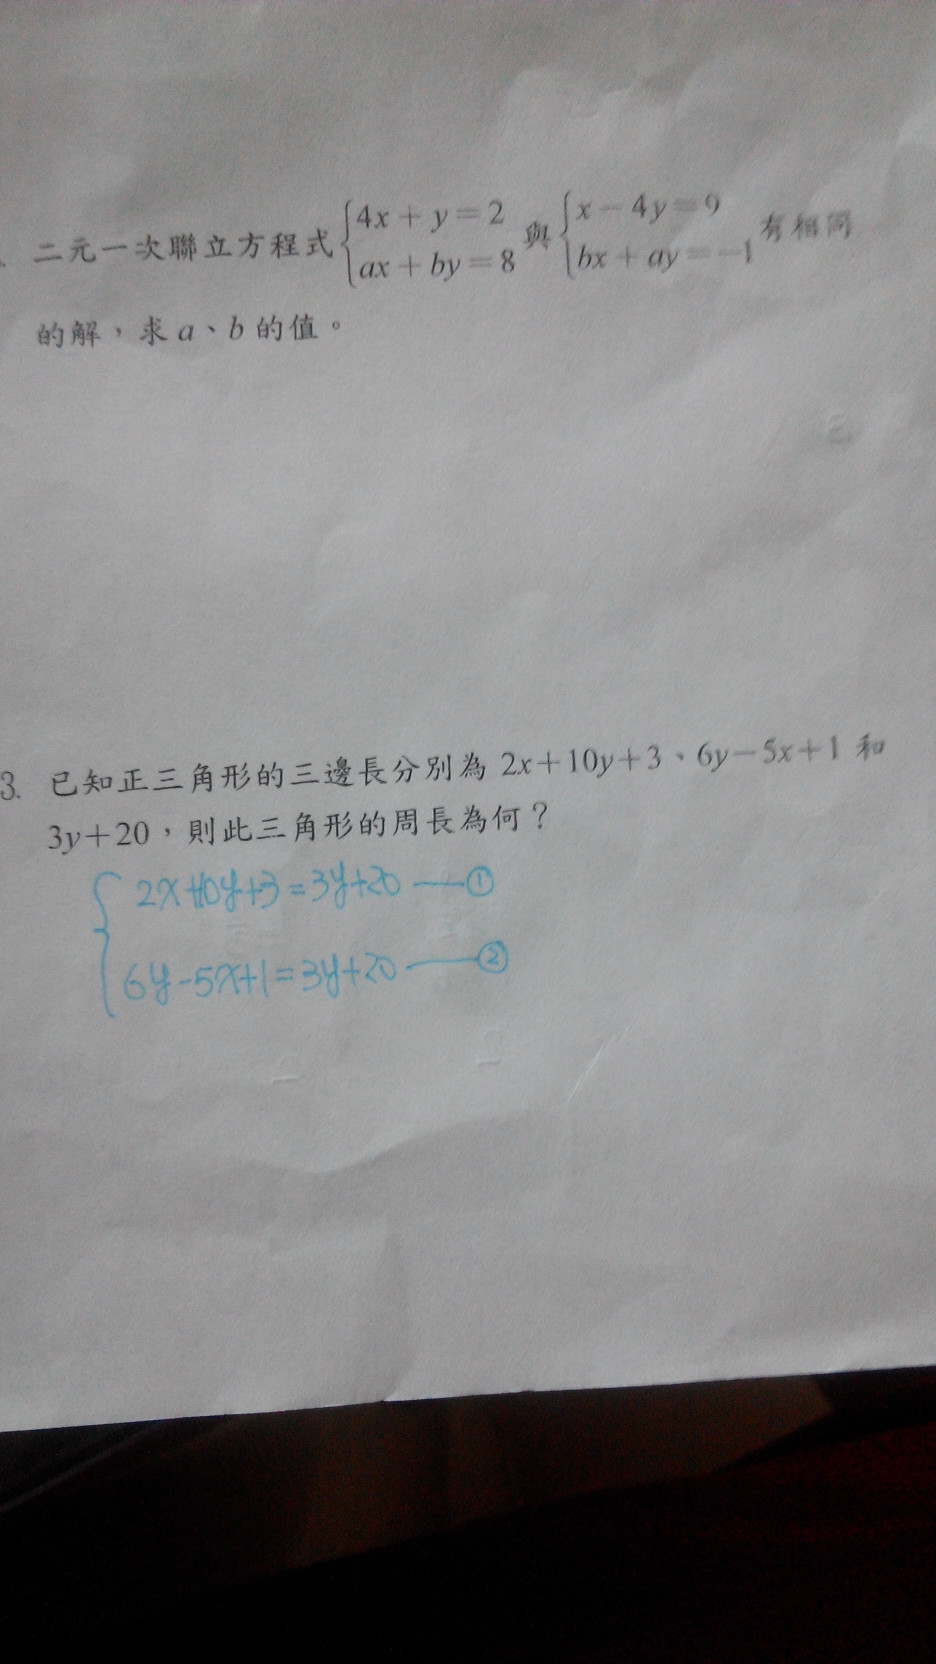 二元一次聯立方程式 {4x+y=2 ax+by=8 與 {x-4y=9 bx+ay=-1 有相同
的解，求 a、b 的值。
3. 已知正三角形的三邊長分別為 2x+10y+3、6y-5x+1 和
3y+20，則此三角形的周長為何？
{2x+10y+3=3y+20 —①
6y-5x+1=3y+20 —②